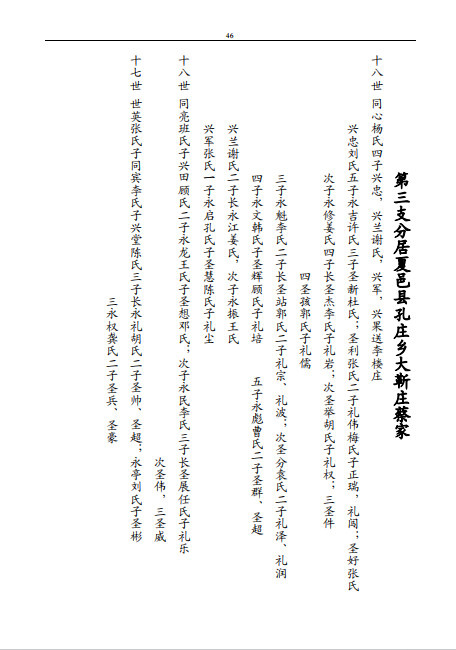 46
第三支分居夏邑县孔庄乡大靳庄蔡家
十八世 同心杨氏四子兴忠，兴兰谢氏，兴军，兴果送李楼庄
兴忠刘氏五子永吉许氏三子圣新杜氏；圣利张氏二子礼伟梅氏子正瑞，礼闯；圣好张氏
次子永修姜氏四子长圣杰李氏子礼岩；次圣举胡氏子礼权；三圣件
四圣孩郭氏子礼儒
三子永魁李氏二子长圣站郭氏二子礼宗、礼波；次圣分袁氏二子礼泽、礼润
四子永文韩氏子圣辉顾氏子礼培 五子永彪曹氏二子圣群、圣超
兴兰谢氏二子长永江姜氏，次子永振王氏
兴军张氏一子永启孔氏子圣慧陈氏子礼尘
十八世 同亮班氏子兴田顾氏二子永龙王氏子圣想邓氏；次子永民李氏三子长圣展任氏子礼乐
次圣伟，三圣威
十七世 世英张氏子同宾李氏子兴堂陈氏三子长永礼胡氏二子圣帅、圣超；永亭刘氏子圣彬
三永权龚氏二子圣兵、圣豪